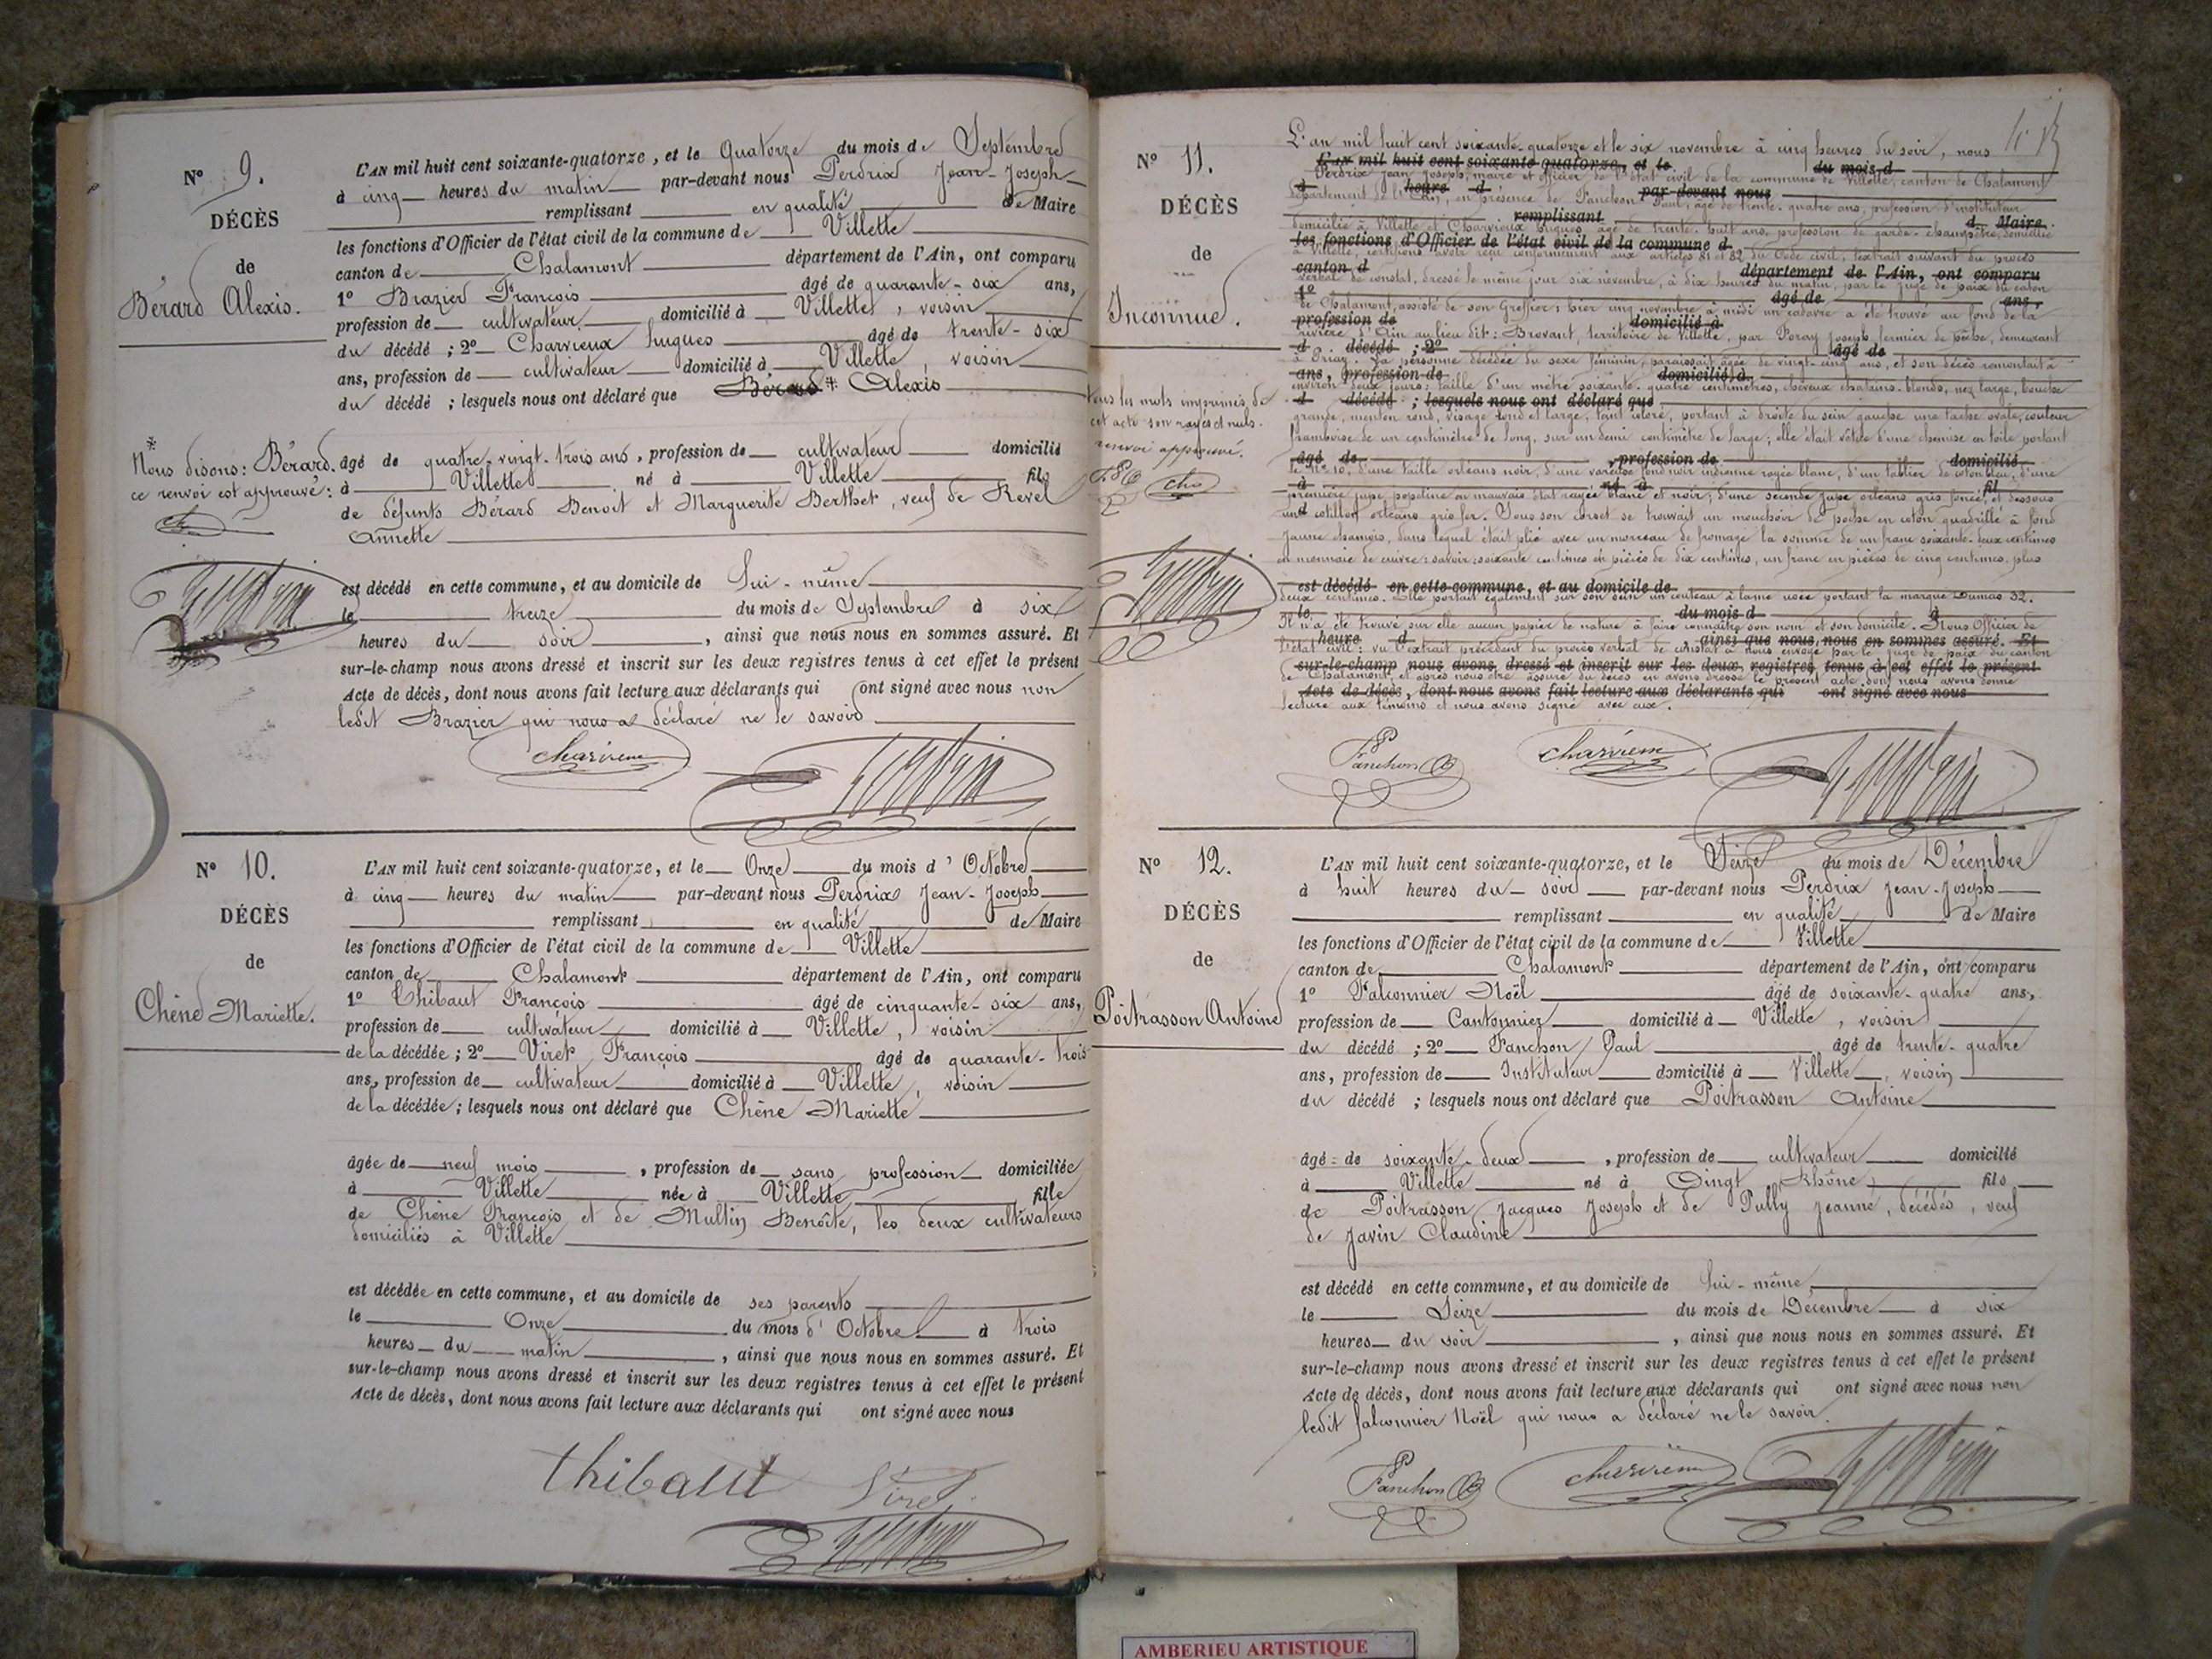 N° 9.
DÉCÈS
de
Bérard Alexis.
L'AN mil huit cent soixante-quatorze, et le Quatorze du mois de Septembre
à cinq heures du matin par-devant nous Perdrix Jean-Joseph
remplissant en qualité de Maire
les fonctions d'Officier de l'état civil de la commune de Villette
canton de Chalamont département de l'Ain, ont comparu
1° Brazier François âgé de quarante-six ans,
profession de cultivateur domicilié à Villette, voisin
du décédé ; 2° Charvieux hugues âgé de trente-six
ans, profession de cultivateur domicilié à Villette, voisin
du décédé ; lesquels nous ont déclaré que Bérard * Alexis
* Nous disons : Bérard.
ce renvoi est approuvé :
âgé de quatre-vingt-trois ans, profession de cultivateur domicilié
à Villette né à Villette fils
de défunts Bérard Benoit et Marguerite Berthet, veuf de Revel
Annette
est décédé en cette commune, et au domicile de lui-même
le treize du mois de Septembre à six
heures du soir, ainsi que nous nous en sommes assuré. Et
sur-le-champ nous avons dressé et inscrit sur les deux registres tenus à cet effet le présent
Acte de décès, dont nous avons fait lecture aux déclarants qui ont signé avec nous non
ledit Brazier qui nous a déclaré ne le savoir
charvieux
N° 10.
DÉCÈS
de
Chêne Mariette.
L'AN mil huit cent soixante-quatorze, et le Onze du mois d'Octobre
à cinq heures du matin par-devant nous Perdrix Jean-Joseph
remplissant en qualité de Maire
les fonctions d'Officier de l'état civil de la commune de Villette
canton de Chalamont département de l'Ain, ont comparu
1° Thibaut François âgé de cinquante-six ans,
profession de cultivateur domicilié à Villette, voisin
de la décédée ; 2° Viret François âgé de quarante-trois
ans, profession de cultivateur domicilié à Villette, voisin
de la décédée ; lesquels nous ont déclaré que Chêne Mariette
âgée de neuf mois, profession de sans profession domiciliée
à Villette née à Villette fille
de Chêne François et de Multin Benoîte, les deux cultivateurs
domiciliés à Villette
est décédée en cette commune, et au domicile de ses parents
le Onze du mois d'Octobre à trois
heures du matin, ainsi que nous nous en sommes assuré. Et
sur-le-champ nous avons dressé et inscrit sur les deux registres tenus à cet effet le présent
Acte de décès, dont nous avons fait lecture aux déclarants qui ont signé avec nous
thibaut Viret
N° 11.
DÉCÈS
de
Inconnue.
tous les mots imprimés de
cet acte son rayés et nuls.
renvoi approuvé.
L'an mil huit cent soixante-quatorze et le six novembre à cinq heures du soir, nous
Perdrix Jean Joseph, maire et officier de l'état civil de la commune de Villette, canton de Chalamont
département de l'Ain, en présence de Fanchon Paul, âgé de trente-quatre ans, profession d'instituteur
domicilié à Villette et Charvieux hugues âgé de trente-huit ans, profession de garde-champêtre, domicilié
à Villette, certifions avoir reçu conformément aux articles 81 et 82 du Code civil, l'extrait suivant du procès
verbal de constat, dressé le même jour six novembre, à dix heures du matin, par le juge de paix du caton
de Chalamont, assisté de son Greffier : hier cinq novembre à midi un cadavre a été trouvé au fond de la
rivière d'Ain au lieu dit : Brovant, territoire de Villette, par Foray Joseph, fermier de pêche, demeurant
à Priay. La personne décédée du sexe féminin, paraissait âgée de vingt-cinq ans, et son décès remontait à
environ deux jours : taille d'un mètre soixante-quatre centimètres, cheveux chatains-blonds, nez large, bouche
grande, menton rond, visage rond et large, teint coloré, portant à droite du sein gauche une tache ovale, couleur
framboise de un centimètre de long, sur un demi centimètre de large ; elle était vêtue d'une chemise en toile portant
le N° 10, d'une taille orléans noir, d'une fond noir indienne rayée blanc, d'un tablier de coton bleu, d'une
première jupe popeline en mauvais état rayée blanc et noir ; d'une seconde jupe orléans gris foncé, et dessous
un cotillon orléans gris fer. Sous son corset se trouvait un mouchoir de poche en coton quadrillé à fond
jaune chamois, dans lequel était plié avec un morceau de fromage la somme de un franc soixante-deux centimes
en monnaie de cuivre : savoir : soixante centimes en pièces de dix centimes, un franc en pièces de cinq centimes, plus
deux centimes. Elle portait également sur son sein un couteau à lame usée portant la marque Dumas 32.
Il n'a été trouvé sur elle aucun papier de nature à faire connaître son nom et son domicile. Nous Officier de
l'état civil : vu l'extrait précédent du procès verbal de constat à nous envoyé par le juge de paix du canton
de Chalamont, et après nous être assuré du décès en avons dressé le présent acte dont nous avons donné
lecture aux témoins et nous avons signé avec eux.
Fanchon charvieux
N° 12.
DÉCÈS
de
Poitrasson Antoine
L'AN mil huit cent soixante-quatorze, et le Seize du mois de Décembre
à huit heures du soir par-devant nous Perdrix Jean-Joseph
remplissant en qualité de Maire
les fonctions d'Officier de l'état civil de la commune de Villette
canton de Chalamont département de l'Ain, ont comparu
1° Falconnier Noël âgé de soixante-quatre ans,
profession de Cantonnier domicilié à Villette, voisin
du décédé ; 2° Fanchon Paul âgé de trente-quatre
ans, profession de Instituteur domicilié à Villette, voisin
du décédé ; lesquels nous ont déclaré que Poitrasson Antoine
âgé de soixante-deux, profession de cultivateur domicilié
à Villette né à Oingt, Rhône fils
de Poitrasson Jacques Joseph et de Pully Jeanne, décédés, veuf
de Javin Claudine
est décédé en cette commune, et au domicile de lui-même
le Seize du mois de Décembre à six
heures du soir, ainsi que nous nous en sommes assuré. Et
sur-le-champ nous avons dressé et inscrit sur les deux registres tenus à cet effet le présent
Acte de décès, dont nous avons fait lecture aux déclarants qui ont signé avec nous non
ledit falconnier Noël qui nous a déclaré ne le savoir.
Fanchon charvieux
AMBERIEU ARTISTIQUE